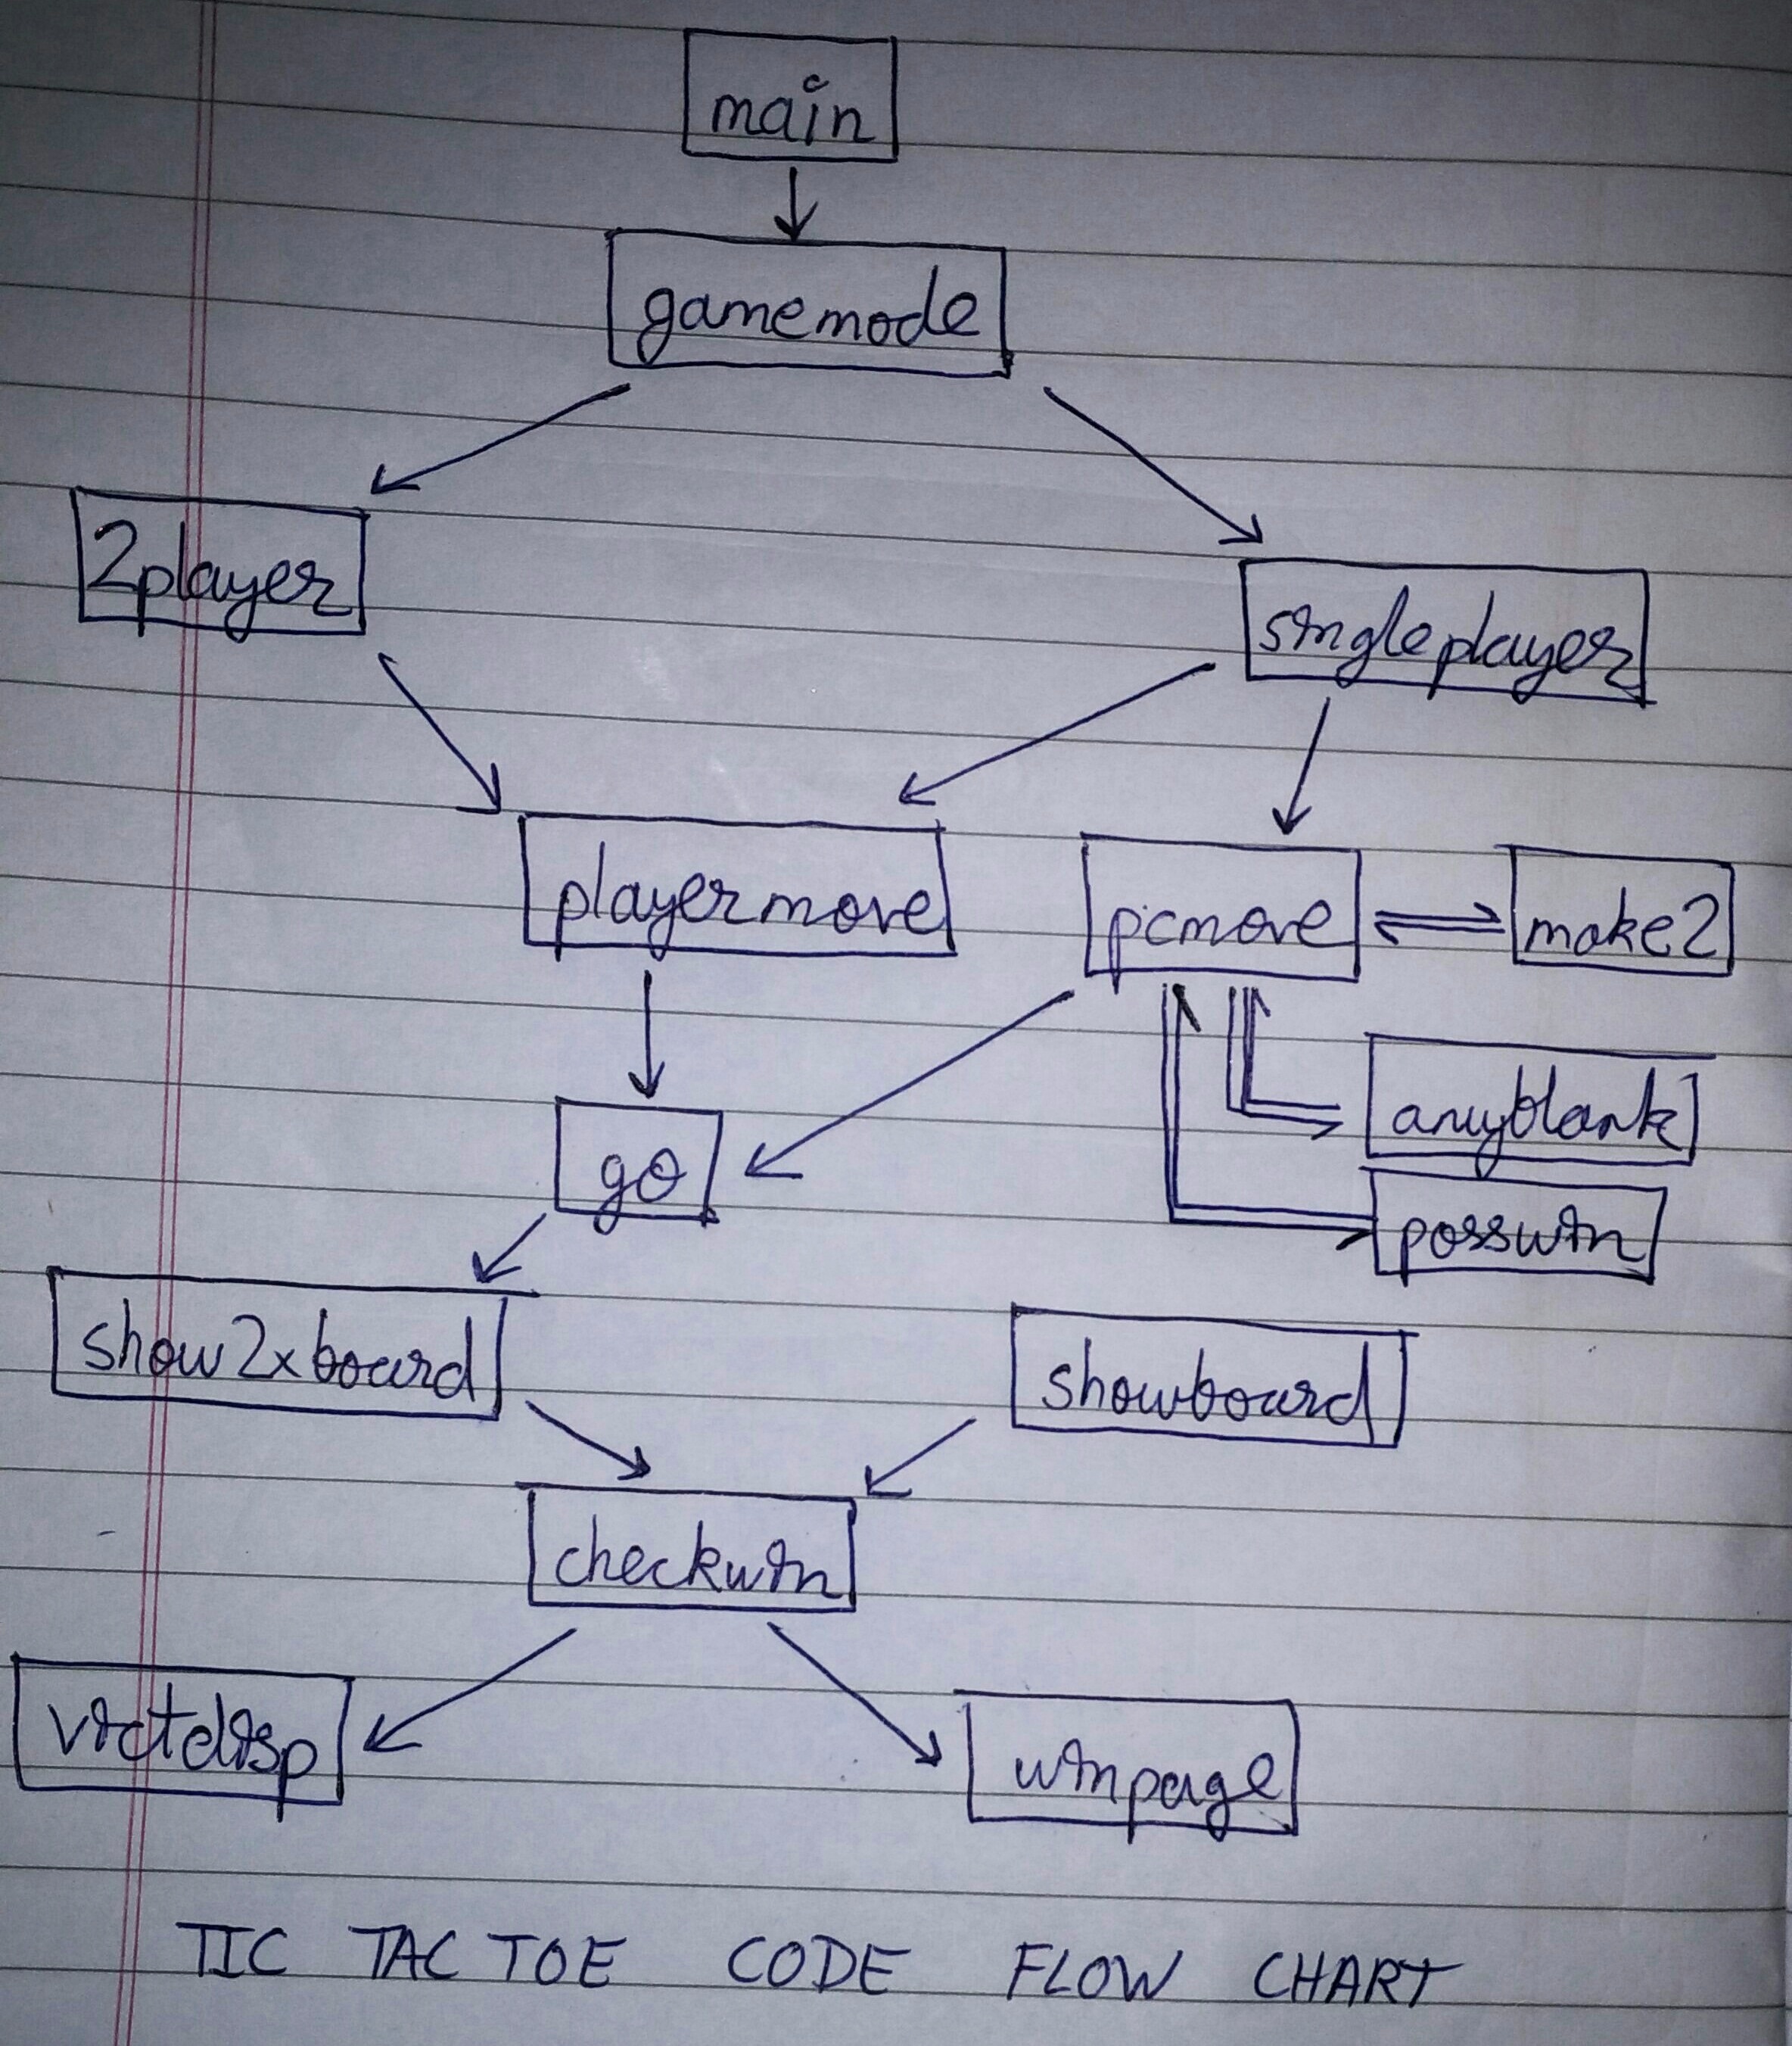 main
gamemode
2player
singleplayer
playermove
pcmove
make2
anyblank
go
posswin
show2xboard
showboard
checkwin
victdisp
winpage
TIC TAC TOE CODE FLOW CHART